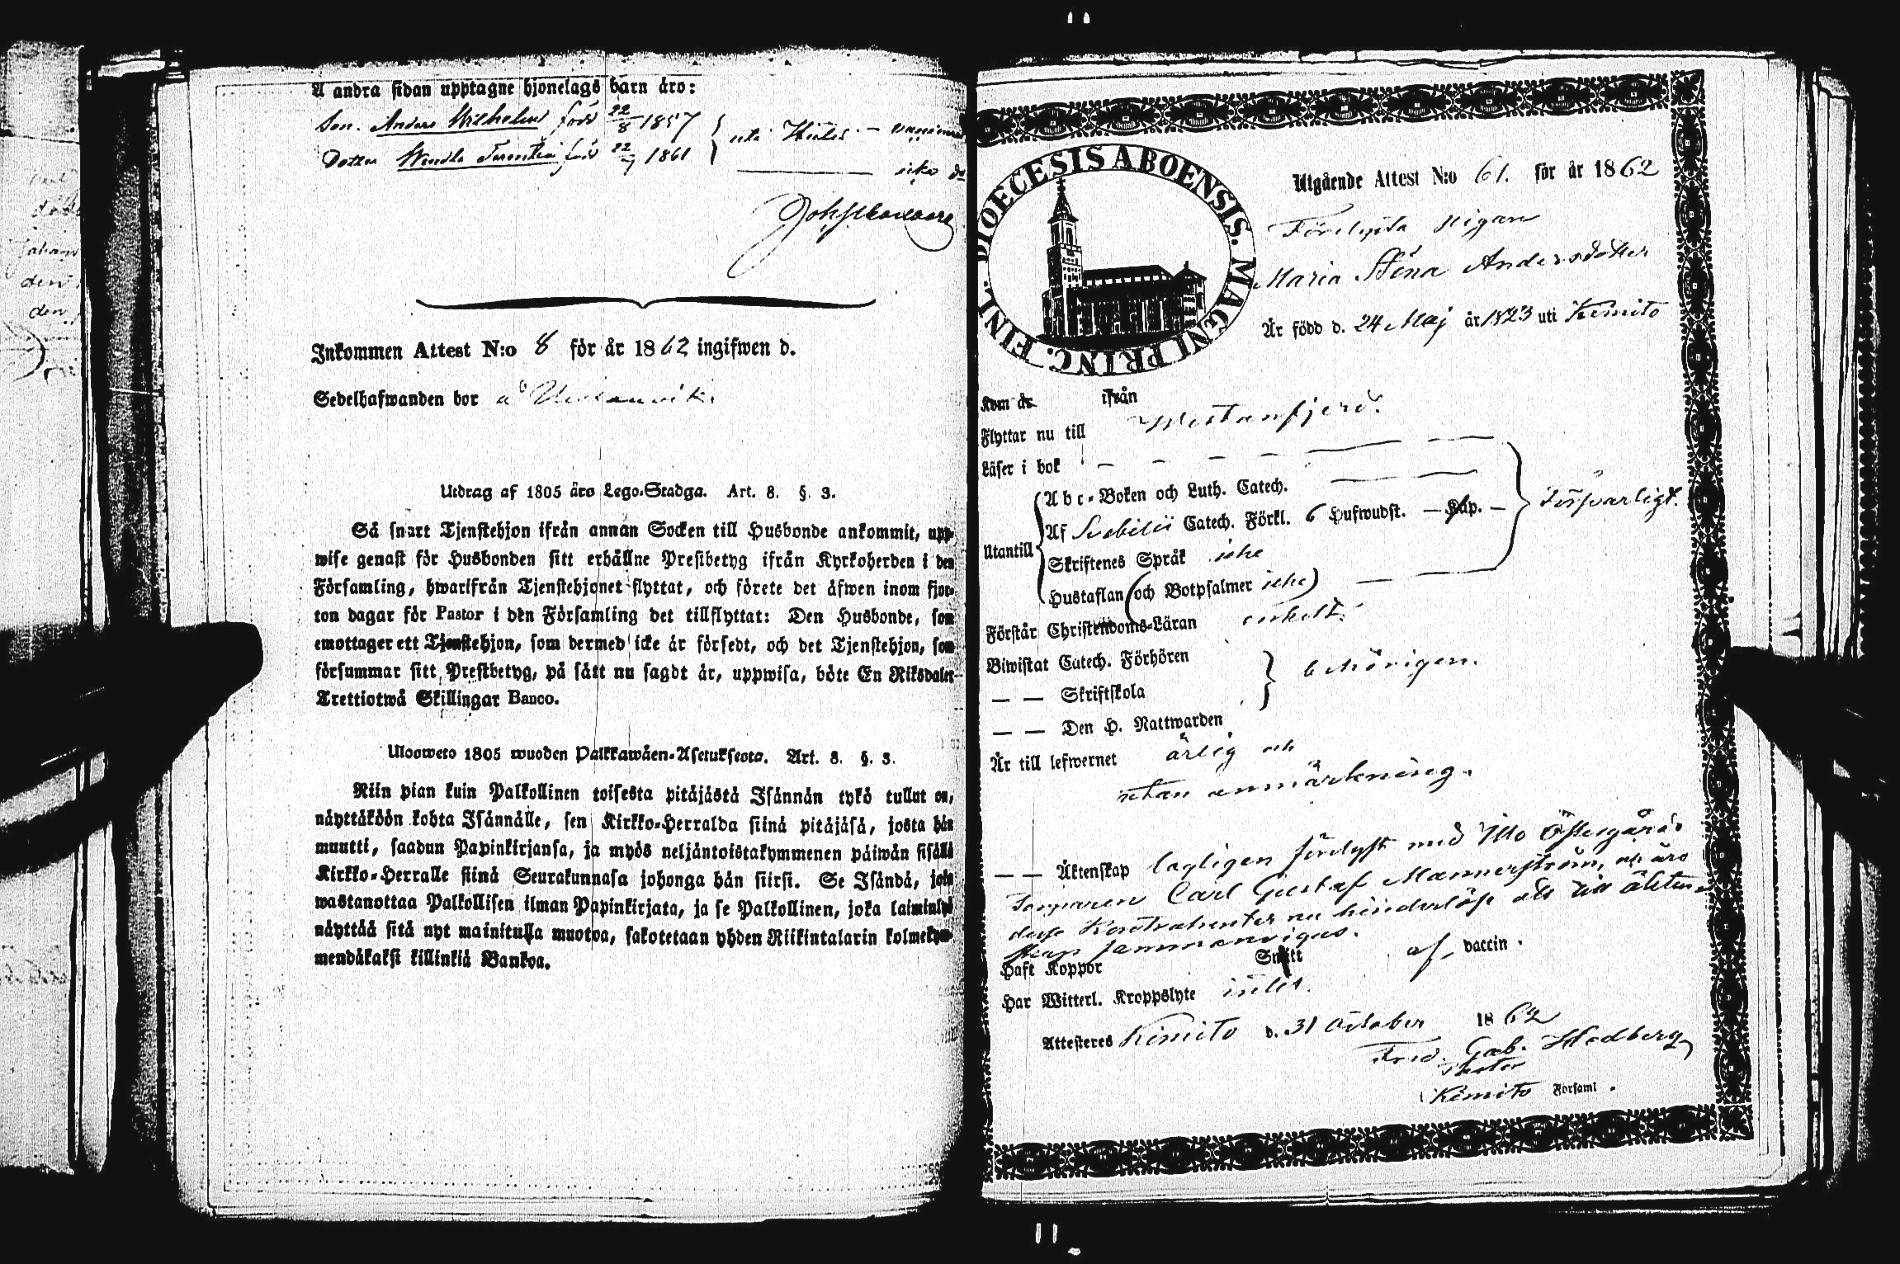 Å andra sidan upptagne hjonelags barn äro:
Son. Anders Wilhelm född 22/8 1857
Dotter Wendla född 22/7 1861
uti
icke do
Inkommen Attest N:o 8 för år 1862 ingifwen d.
Sedelhafwanden bor å
Utdrag af 1805 års Lego-Stadga. Art. 8. §. 3.
Så snart Tjenstehjon ifrån annan Socken till Husbonde ankommit, upp-
wise genast för Husbonden sitt erhållne Prestbetyg ifrån Kyrkoherden i den
Församling, hwarifrån Tjenstehjonet flyttat, och förete det äfwen inom fjor-
ton dagar för Pastor i den Församling det tillflyttat: Den Husbonde, som
emottager ett Tjenstehjon, som dermed icke är försedt, och det Tjenstehjon, som
försummar sitt Prestbetyg, på sätt nu sagdt är, uppwisa, böte En Riksdaler
Trettiotwå Skillingar Banco.
Ulosweto 1805 wuoden Palkkawäen-Asetuksesta. Art. 8. §. 3.
Niin pian kuin Palkollinen toisesta pitäjästä Isännän tykö tullut on,
näyttäköön kohta Isännälle, sen Kirkko-Herralda siinä pitäjäsä, josta hän
muutti, saadun Papinkirjansa, ja myös neljäntoistakymmenen päiwän sisällä
Kirkko-Herralle siinä Seurakunnasa johonga hän siirsi. Se Isändä, joka
wastanottaa Palkollisen ilman Papinkirjata, ja se Palkollinen, joka laiminlyö
näyttää sitä nyt mainitulla muotoa, sakotetaan yhden Riikintalarin kolmekym-
mendäkaksi killinkiä Bankoa.
DIOECESIS ABOENSIS. MAGNI PRINC. FINL.
Utgående Attest N:o 61. för år 1862
Förelysta Pigan
Maria Stina Andersdotter
Är född d. 24 Maj år 1823 uti Kimito
Kom år ifrån
Flyttar nu till Westanfjerd.
Läser i bok
Utantill
Abc-Boken och Luth. Catech.
Af Svebelii Catech. Förkl. 6 Hufwudst. — Kap. —
Skriftenes Språk icke
Hustaflan (och Botpsalmer icke)
försvarligt.
Förstår Christendoms-Läran enkelt.
Biwistat Catech. Förhören
— — Skriftskola
behörigen.
— — Den H. Nattwarden
Är till lefwernet ärlig och
utan anmärkning.
— — Äktenskap lagligen förelyst med Illo Östergårds
Torparen Carl Gustaf Mannerström, och äro
desse Kontrahenter nu hinderlöse att till äkten-
skap sammanvigas.
Haft Koppor Smitt af vaccin.
Har Witterl. Kroppslyte intet.
Attesteres Kimito d. 31 October 1862
Fred. Gab. Hedberg
Pastor
Kimito Forsaml.